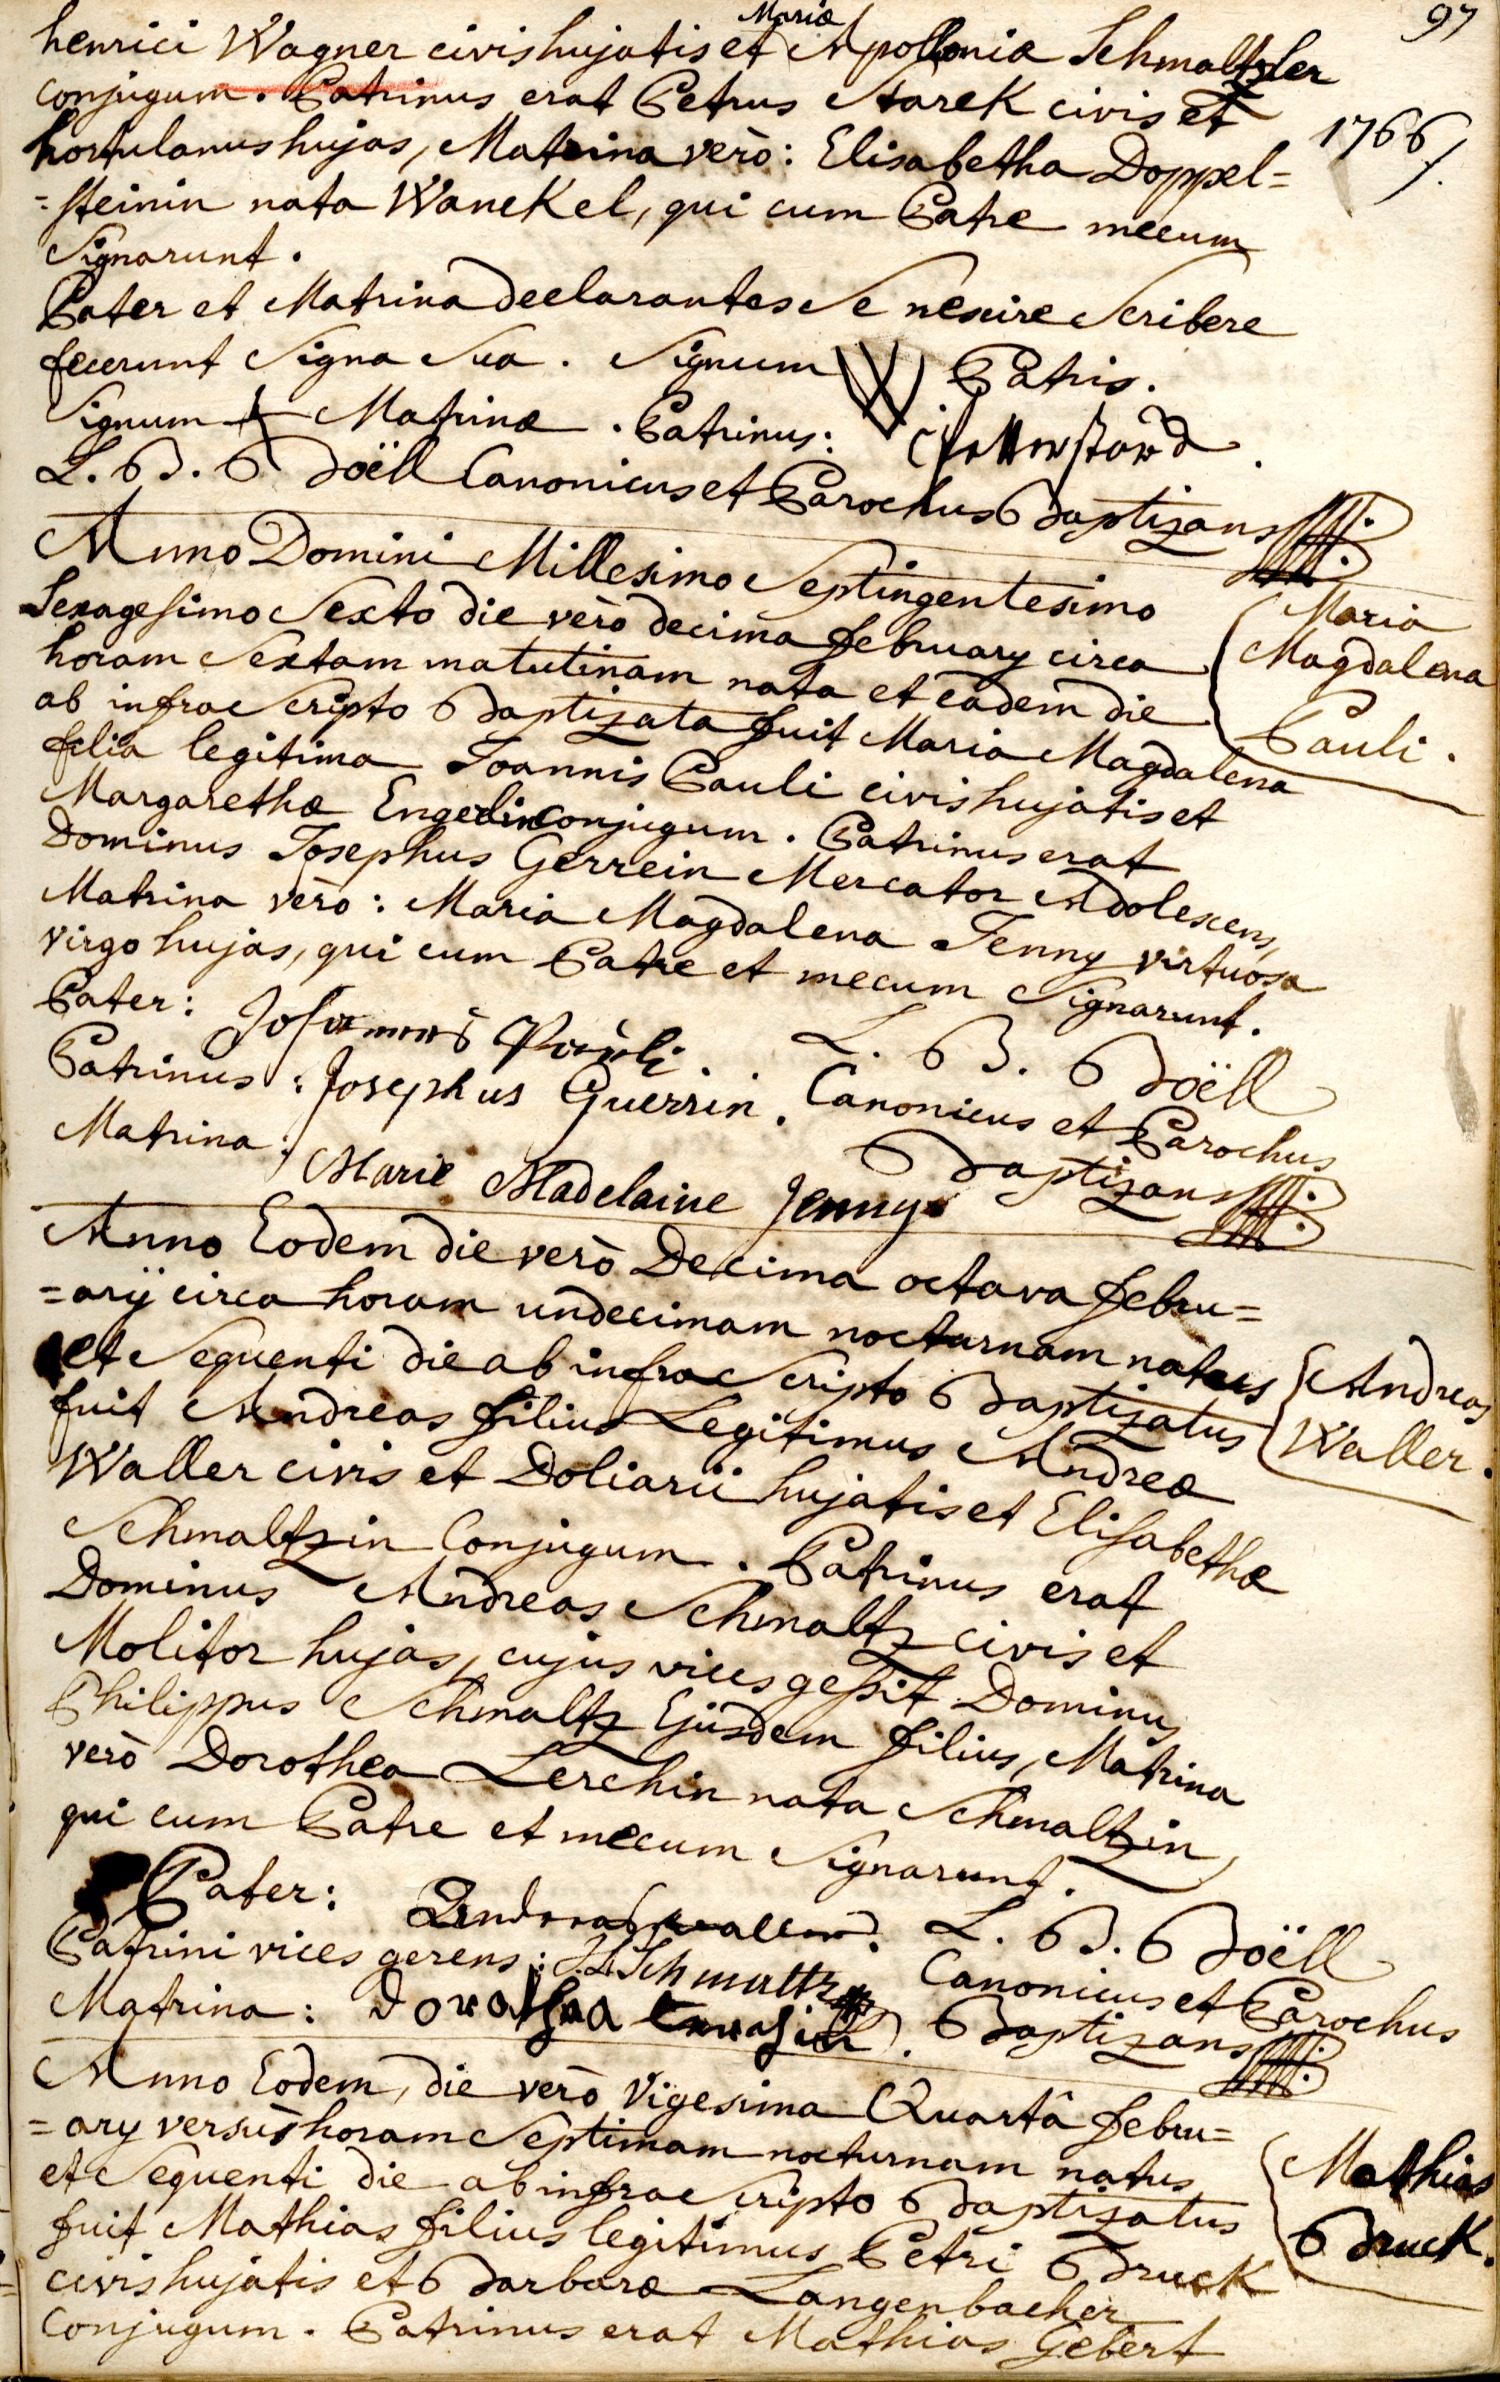 97
Mariæ
henrici Wagner civis hujatis et Apolloniæ Schmaltzler
conjugum. Patrinus erat Petrus Starck civis et
hortulanus hujas, Matrina verò: Elisabetha Doppel=
1766
=steinin nata Wanckel, qui cum Patre mecum
Signarunt.
Pater et Matrina declarantes Se nescire Scribere
fecerunt Signa Sua. Signum W Patris.
Signum + Matrinæ. Patrinus:
L. B. Boëll Canonicus et Parochus Baptizans
Anno Domini Millesimo Septingentesimo
Sexagesimo Sexto die verò decima february circa
horam Sextam matutinam nata et eadem die
ab infrascripto Baptizata fuit Maria Magdalena
Maria
Magdalena
Pauli.
filia legitima Joannis Pauli civis hujatis et
Margarethæ Engelin conjugum. Patrinus erat
Dominus Josephus Gerrein Mercator Adolescens,
Matrina verò: Maria Magdalena Jenny virtuosa
virgo hujas, qui cum Patre et mecum Signarunt.
Pater: Johannes Pauli
Patrinus: Josephus Guerrin.
Matrina: Marie Madelaine Jenny
L. B. Boëll
Canonicus et Parochus
Baptizans
Anno Eodem die verò Decima octava febru=
=arÿ circa horam undecimam nocturnam natus
et Sequenti die ab infrascripto Baptizatus
Andreas
Waller.
fuit Andreas filius Legitimus Andreæ
Waller civis et Doliarii hujatis et Elisabethæ
Schmaltzin Conjugum. Patrinus erat
Dominus Andreas Schmaltz civis et
Molitor hujas, cujus vices gessit Dominus
Philippus Schmaltz Ejusdem filius, Matrina
verò Dorothea Lerchin nata Schmaltzin,
qui cum Patre et mecum Signarunt.
Pater: Andreas Waller.
Patrini vices gerens: Schmaltz
Matrina: Dorathea
L. B. Boëll
Canonicus et Parochus
Baptizans
Anno Eodem, die verò Vigesima Quartâ febru=
=ary versus horam Septimam nocturnam natus
et Sequenti die ab infrascripto Baptizatus
Mathias
Bruck.
fuit Mathias filius legitimus Petri Bruck
civis hujatis et Barbaræ Langenbacher
Conjugum. Patrinus erat Mathias Gebert